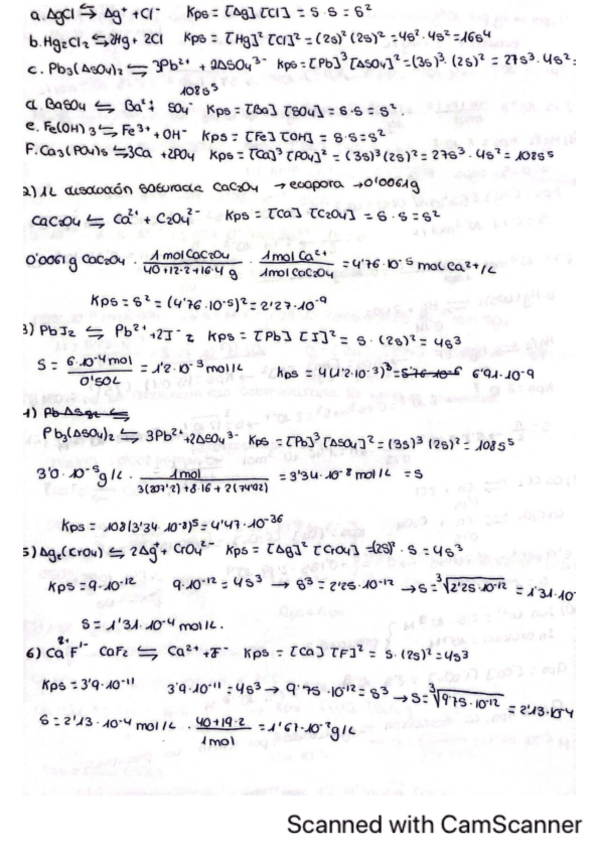 a. AgCl ⇆ Ag⁺ + Cl⁻ Kps = [Ag] [Cl] = s · s = s²
b. Hg₂Cl₂ ⇆ 2Hg + 2Cl Kps = [Hg]² [Cl]² = (2s)² (2s)² = 4s² · 4s² = 16s⁴
c. Pb₃(AsO₄)₂ ⇆ 3Pb²⁺ + 2AsO₄³⁻ Kps = [Pb]³ [AsO₄]² = (3s)³ · (2s)² = 27s³ · 4s² =
108s⁵
d. BaSO₄ ⇆ Ba²⁺ + SO₄⁻ Kps = [Ba] [SO₄] = s · s = s².
e. Fe(OH)₃ ⇆ Fe³⁺ + OH⁻ Kps = [Fe] [OH] = s · s = s²
F. Ca₃(PO₄)₂ ⇆ 3Ca + 2PO₄ Kps = [Ca]³ [PO₄]² = (3s)³ (2s)² = 27s³ · 4s² = 108s⁵
2) 1L disolución saturada CaC₂O₄ → evapora → 0'0061g
CaC₂O₄ ⇆ Ca²⁺ + C₂O₄²⁻ Kps = [Ca] [C₂O₄] = s · s = s²
0'0061 g CaC₂O₄ · 1 mol CaC₂O₄ / 40+12·2+16·4 g · 1 mol Ca²⁺ / 1 mol CaC₂O₄ = 4'76 · 10⁻⁵ mol Ca²⁺/L
Kps = s² = (4'76 · 10⁻⁵)² = 2'27 · 10⁻⁹
3) PbI₂ ⇆ Pb²⁺ + 2I⁻ Kps = [Pb] [I]² = s · (2s)² = 4s³
S = 6 · 10⁻⁴ mol / 0'50L = 1'2 · 10⁻³ mol/L Kps = 4(1'2 · 10⁻³)³ = 6'91 · 10⁻⁹
4)
Pb₃(AsO₄)₂ ⇆ 3Pb²⁺ + 2AsO₄³⁻ Kps = [Pb]³ [AsO₄]² = (3s)³ (2s)² = 108s⁵
3'0 · 10⁻⁵ g/L · 1 mol / 3(207'2) + 8·16 + 2(74'92) = 3'34 · 10⁻⁸ mol/L = s
Kps = 108(3'34 · 10⁻⁸)⁵ = 4'47 · 10⁻³⁶
5) Ag₂(CrO₄) ⇆ 2Ag⁺ + CrO₄²⁻ Kps = [Ag]² [CrO₄] = (2s)² · s = 4s³
Kps = 9 · 10⁻¹² 9 · 10⁻¹² = 4s³ → s³ = 2'25 · 10⁻¹² → s = ³√2'25 · 10⁻¹² = 1'31 · 10
S = 1'31 · 10⁻⁴ mol/L.
6) Ca²⁺F¹⁻ CaF₂ ⇆ Ca²⁺ + F⁻ Kps = [Ca] [F]² = s · (2s)² = 4s³
Kps = 3'9 · 10⁻¹¹ 3'9 · 10⁻¹¹ = 4s³ → 9'75 · 10⁻¹² = s³ → s = ³√9'75 · 10⁻¹² = 2'13 · 10⁻⁴
S = 2'13 · 10⁻⁴ mol/L · 40+19·2 / 1 mol = 1'67 · 10⁻² g/L
Scanned with CamScanner